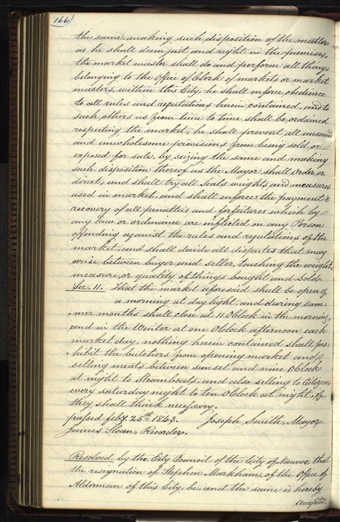 166
the same, making such disposition of the matter
as he shall deem just and right in the premises.
the market master shall do and perform all things
belonging to the office of Clerk of markets or market
masters within this City; he shall inforce obedience
to all rules and regulations herein contained, and to
such others as from time to time shall be ordained
respecting the market; he shall prevent all unsound
and unwholesome provisions from being sold, or
exposed for sale, by seizing the same and making
such disposition thereof as the Mayor shall order or
direct, and shall try all Scales weights and measures
used in market, and shall enforce the payment &
recovery of all penalties and forfeitures which by
any law or ordinance are inflicted on any Person
offending against the rules and regulations of the
market; and shall decide all disputes that may
arise between buyer and seller, touching the weight,
measure, or quality of things bought and Sold.
Sec. 11. That the market aforesaid shall be open
a morning at day light, and during sum-
mer months shall close at 11 Oclock in the morning,
and in the Winter at one Oclock afternoon each
market day, nothing herein contained shall pro-
hibit the butchers from opening market and
selling meats between sunset and nine Oclock
at night to Steamboats, and also selling to Citizens
every saturday night to ten Oclock at night, if
they shall think necessary.
passed feby 25th 1843. Joseph Smith, Mayor
James Sloan, Recorder.
Resolved by the City Council of the City of Nauvoo, that
the resignation of Stephen Markham, of the Office of
Alderman of this City, be, and the same is hereby
accepted.